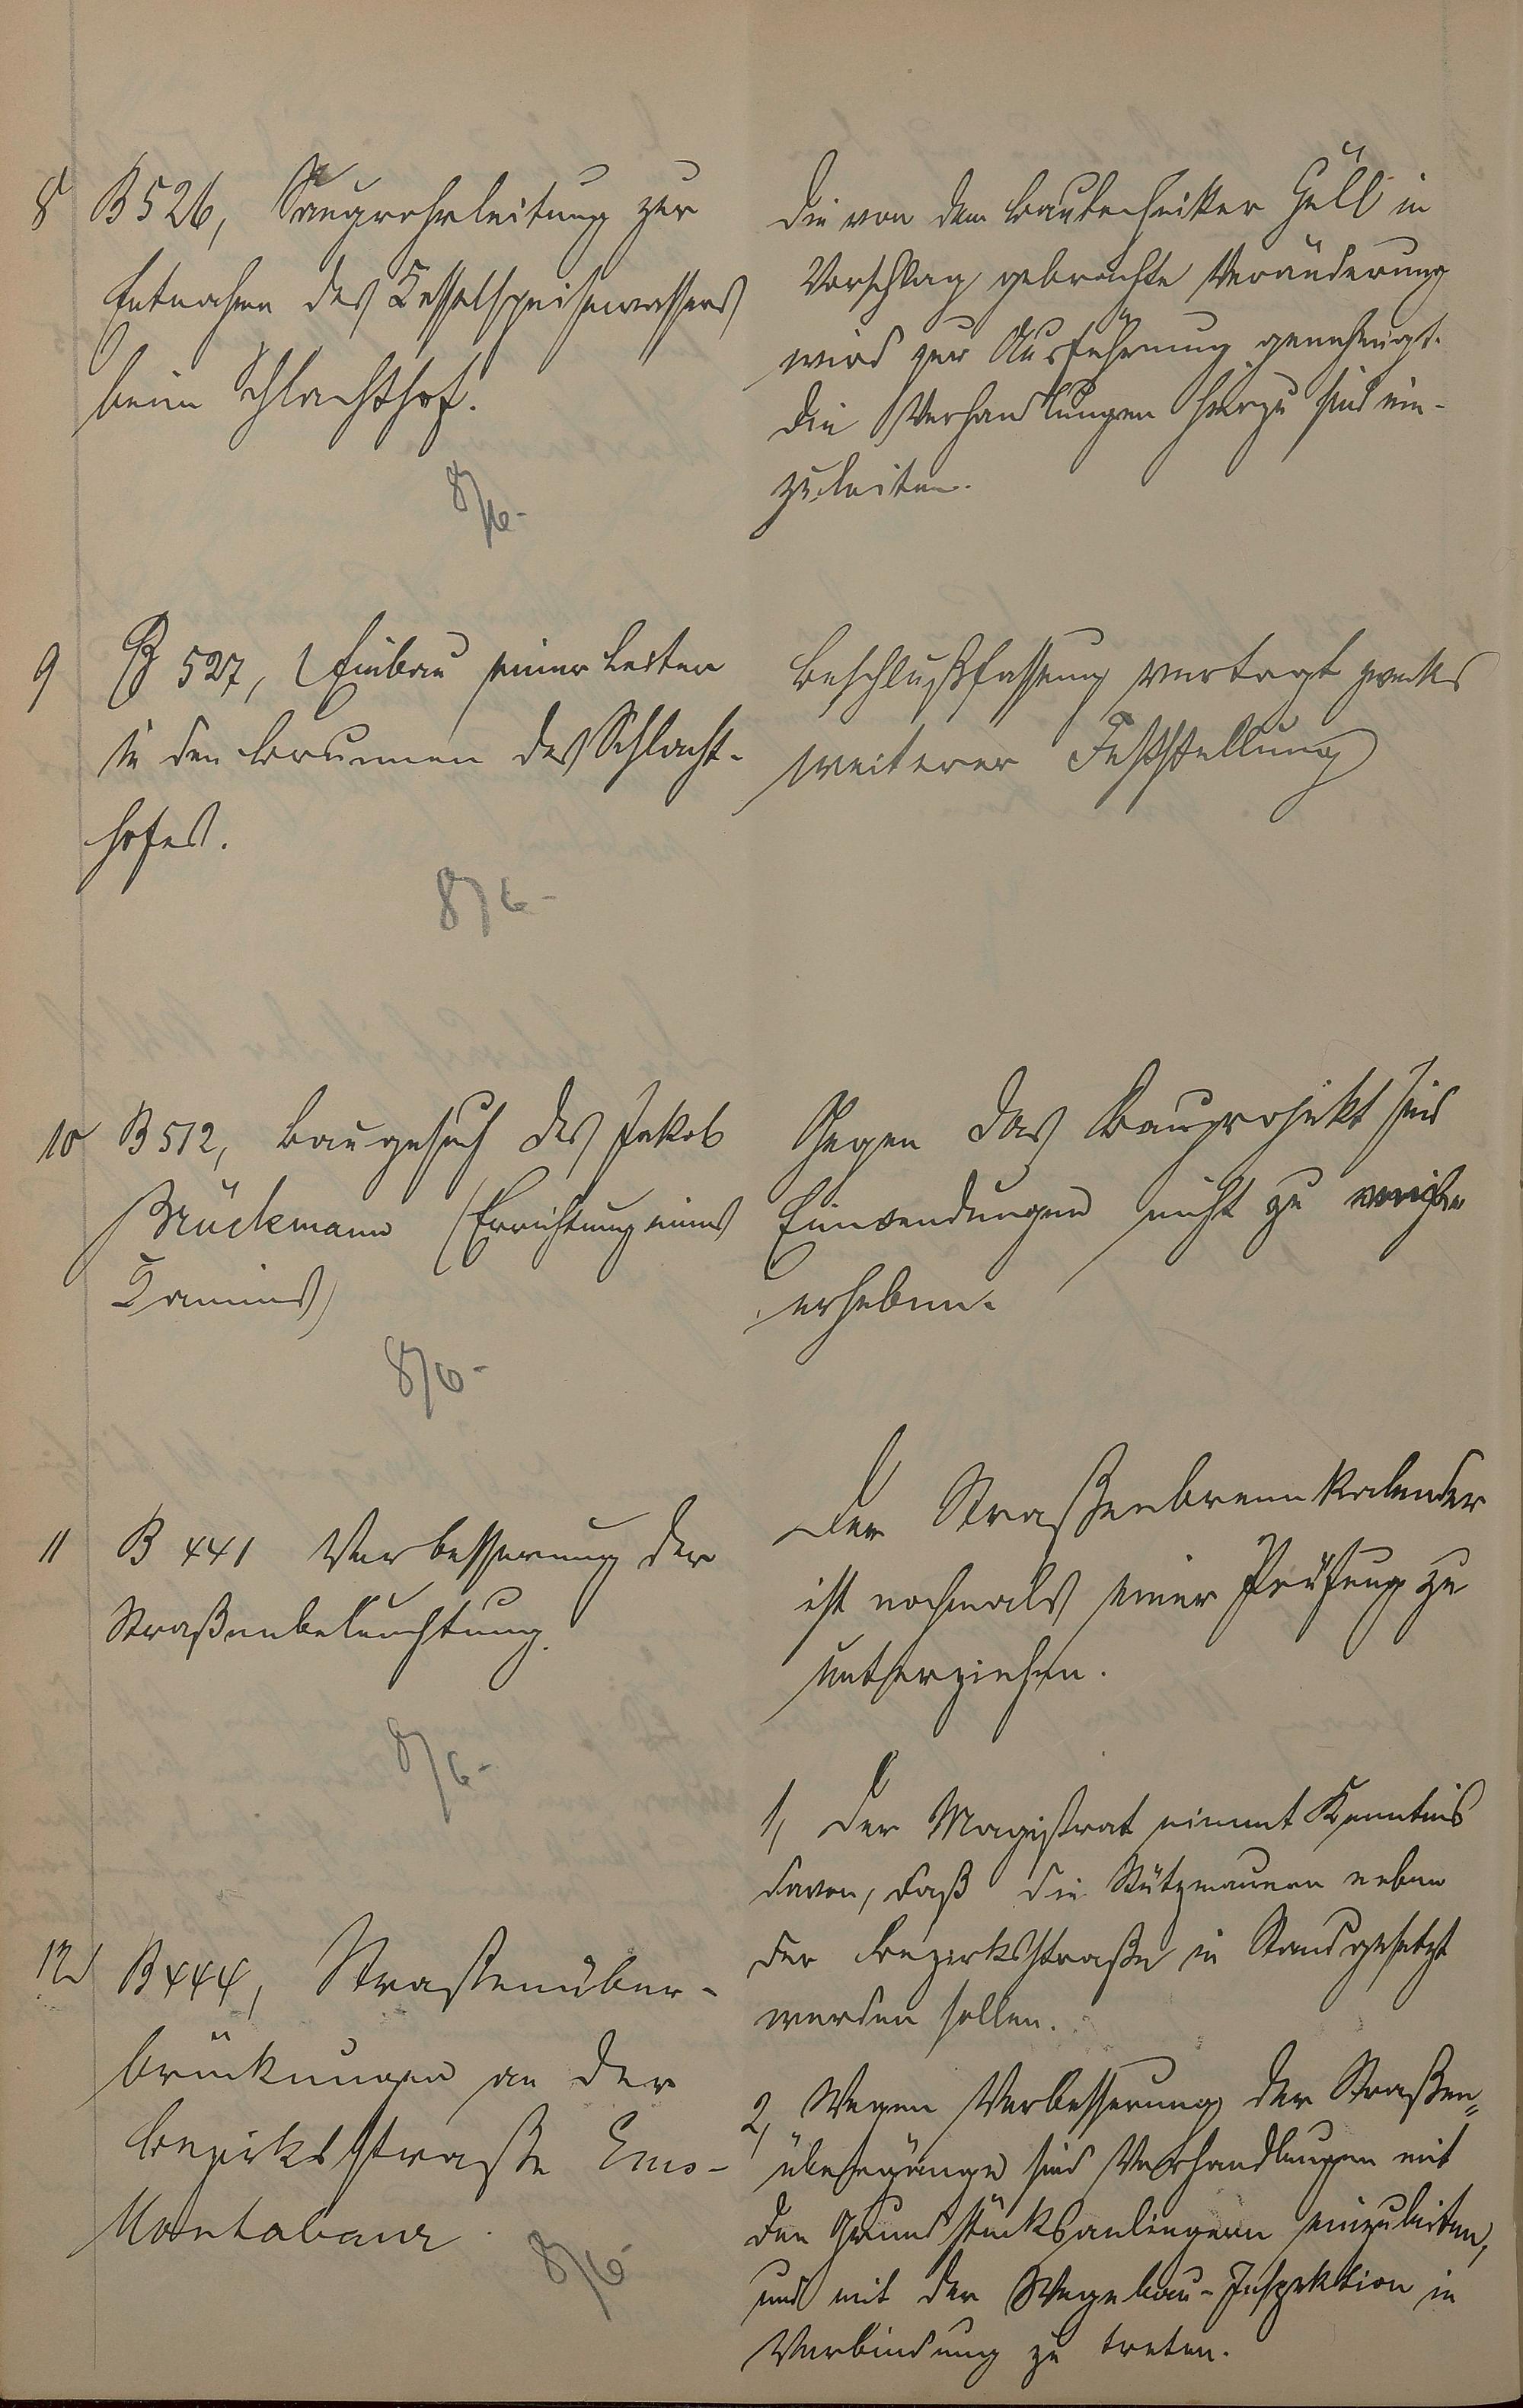 8 B 526, Saugrohrleitung zur
Entnahme des Kesselspeisewassers
beim Schlachthof.
8/6-
Die von dem Bautechniker Güll in
Vorschlag gebrachte Veränderung
wird zur Ausführung genehmigt.
Die Verhandlungen hierzu sind ein-
zuleiten.
9 B 527, Einbau einer Leiter
in den Brunnen des Schlacht-
hofes.
8/6-
Beschlußfassung vertagt zwecks
weiterer Feststellung
10 B 512, Baugesuch des Jakob
Brückmann (Errichtung eines
Kamins)
8/6-
Gegen das Bauprojekt sind
Einwendungen nicht zu
erheben.
11 B 441 Verbesserung der
Straßenbeleuchtung.
8/6-
Der Straßenbrennkalender
ist nochmals einer Prüfung zu
unterziehen.
12 B 444, Straßenüber-
brückungen an der
Bezirksstraße Ems-
Montabaur.
8/6
1, Der Magistrat nimmt Kenntnis
davon, daß die Stützmauern neben
der Bezirksstraße in Stand gesetzt
werden sollen.
2, Wegen Verbesserung der Straßen=
übergänge sind Verhandlungen mit
den Grundstücksanliegern einzuleiten,
und mit der Wegebau-Inspektion in
Verbindung zu treten.